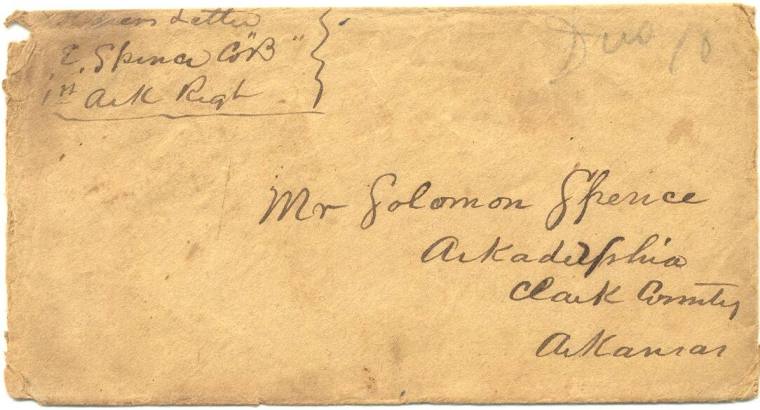 Letter
E. Spence Co "B"
1st Ark Regt
Due 10
Mr Solomon Spence
Arkadelphia
Clark County
Arkansas